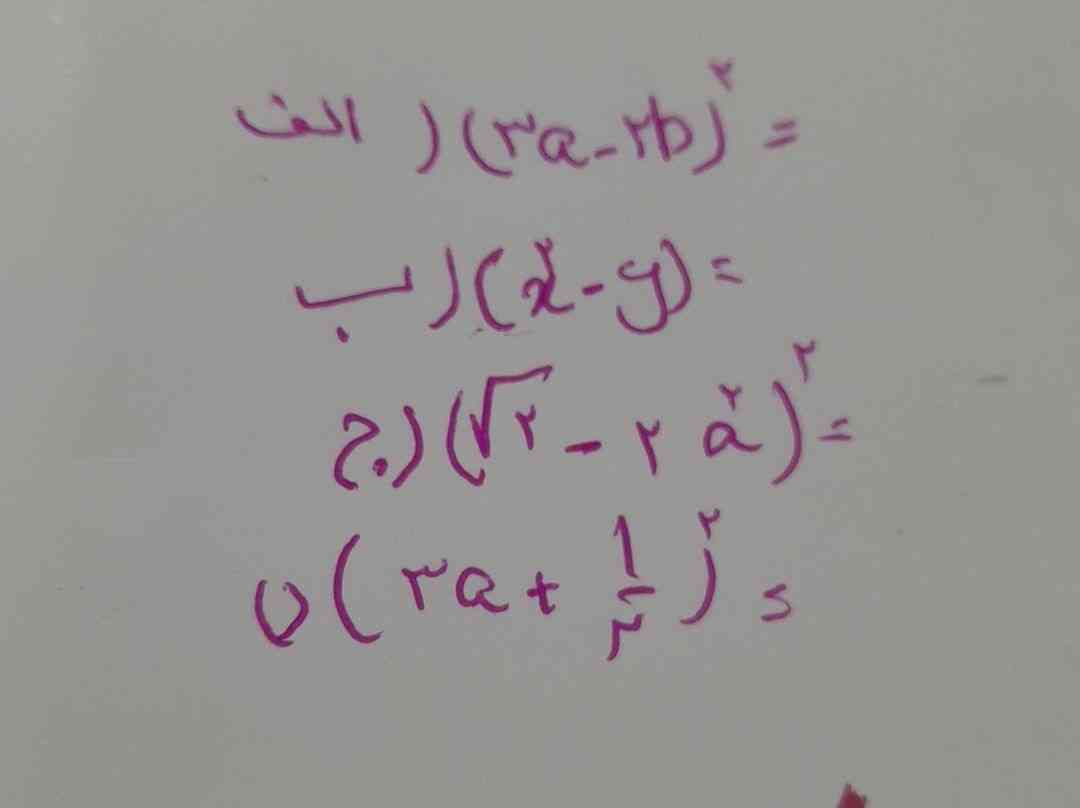 الف) (۳a-۲b)^۲ =
ب) (x^۲-y) =
ج) (√۲ - ۲a^۲)^۲ =
د) (۳a + ۱/۳)^۲ =